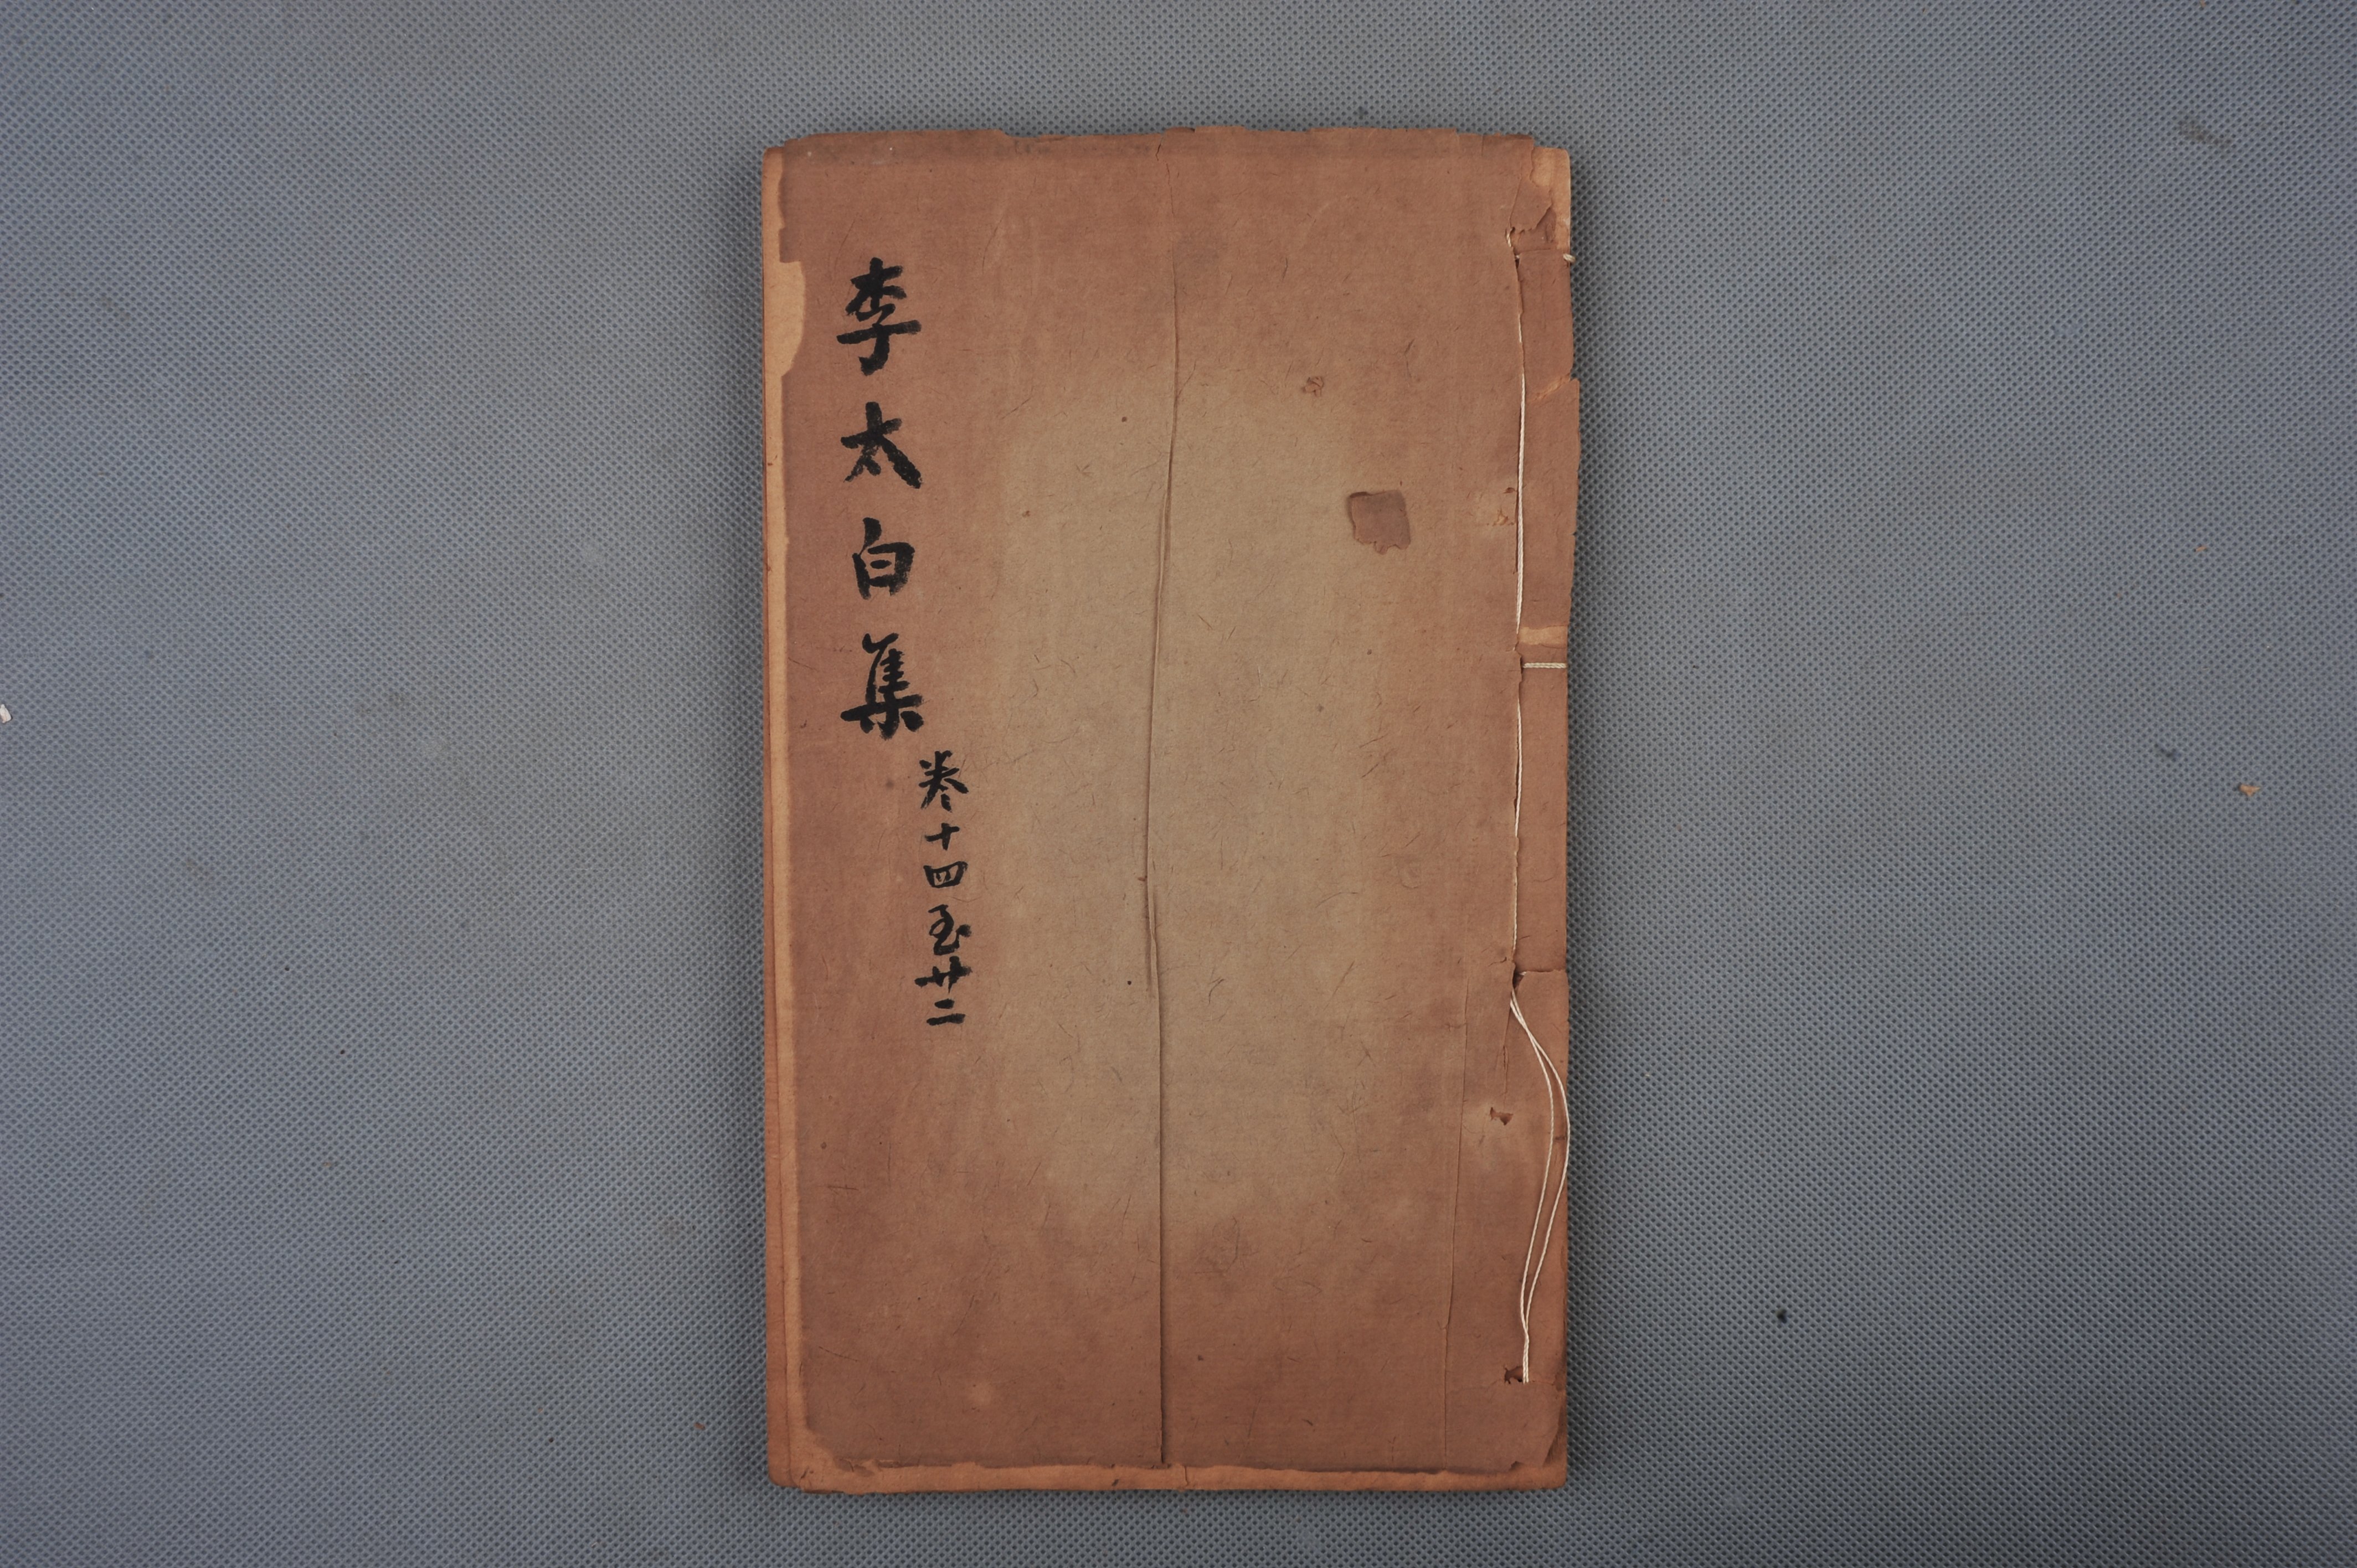 李太白集
卷十四至廿二